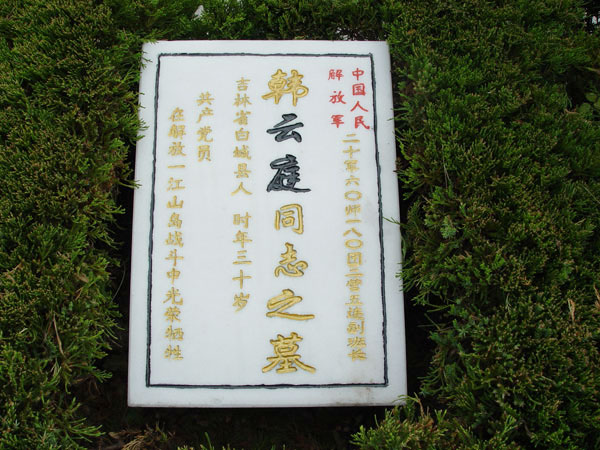 中国人民
解放军
二十军六〇师一八〇团二营五连副班长
韩云庭同志之墓
吉林省白城县人 时年三十岁
共产党员
在解放一江山岛战斗中光荣牺牲